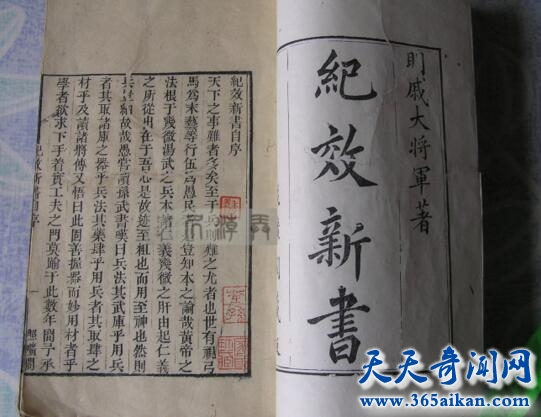 明戚大將軍著
紀效新書
紀效新書自序
天下之事難者多矣至于兵則難之尤者也世有視弓
馬爲末藝等行伍爲愚民者是豈知本之論哉黃帝之
法根于幾微湯武之兵本諸仁義幾微之所由起仁義
之所從出在于吾心是故延至祖也而用至神也然則
兵豈細故哉愚嘗讀孫武書嘆曰兵法其武庫乎用兵
者其取諸庫之器乎兵法其藥肆乎用兵者其取肆之
材乎及讀諸將傳又悟曰此固善握器而妙用材者乎
學者欲求下手着實工夫之門莫踰于此數年間予承
紀效新書自序
照曠閣
天天奇闻网
www.365aikan.com